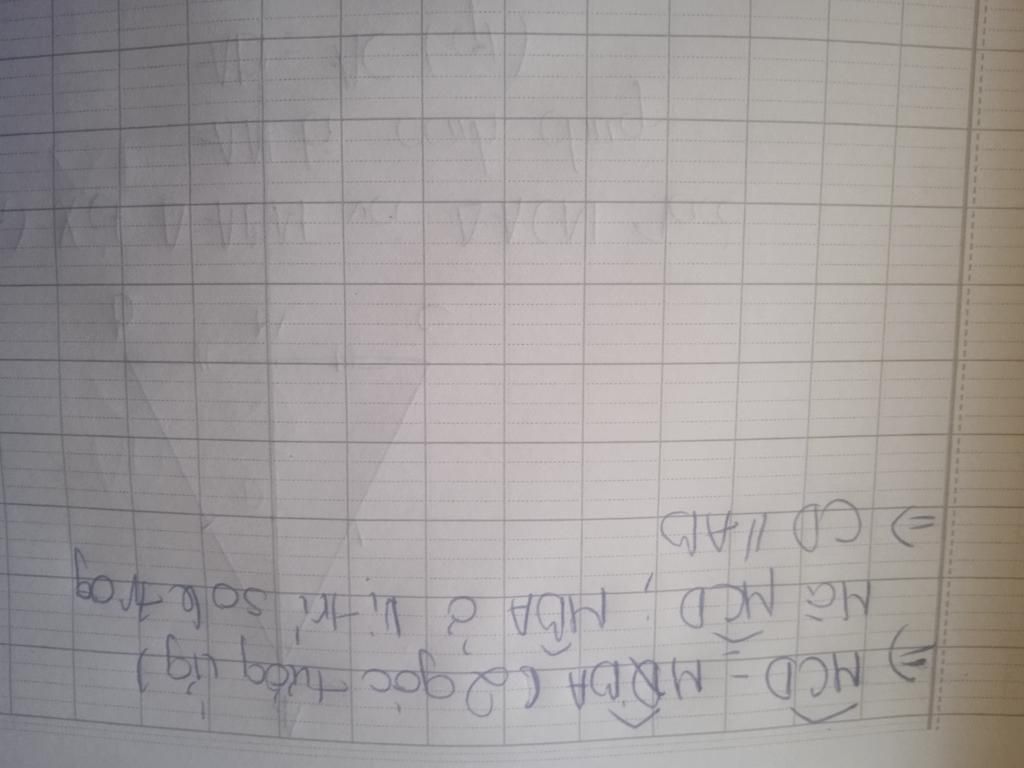 ⇒ MĈD = MB̂A (2 góc tươg ứg)
Mà MĈD, MB̂A ở vị trí so le trog
⇒ CD // AB